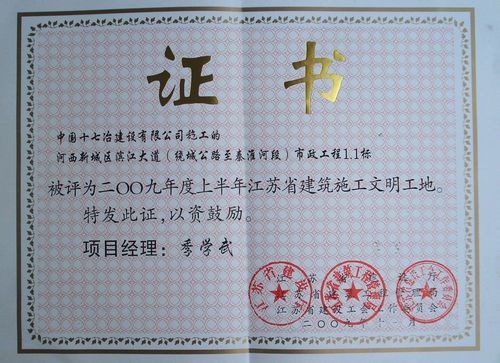 证书
中国十七冶建设有限公司施工的
河西新城区滨江大道（绕城公路至秦淮河段）市政工程1.1标
被评为二〇〇九年度上半年江苏省建筑施工文明工地。
特发此证，以资鼓励。
项目经理：季学武
江苏省建
江苏省建
江苏省建设工会工作委员会
二〇〇九年十一月